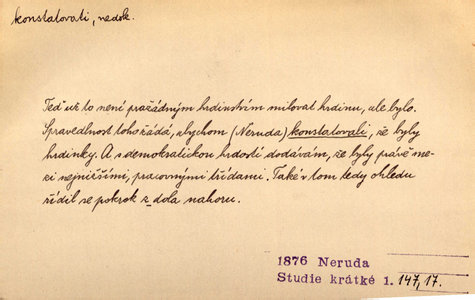 konstatovati, nedok.
Teď už to není pražádným hrdinstvím milovat hrdinu, ale bylo.
Spravedlnost toho žádá, abychom (Neruda) konstatovali, že byly
hrdinky. A s demokratickou hrdostí dodávám, že byly právě me-
zi nejnižšími, pracovnými třídami. Také v tom tedy ohledu
řídil se pokrok z dola nahoru.
1876 Neruda
Studie krátké 1. 147,17.